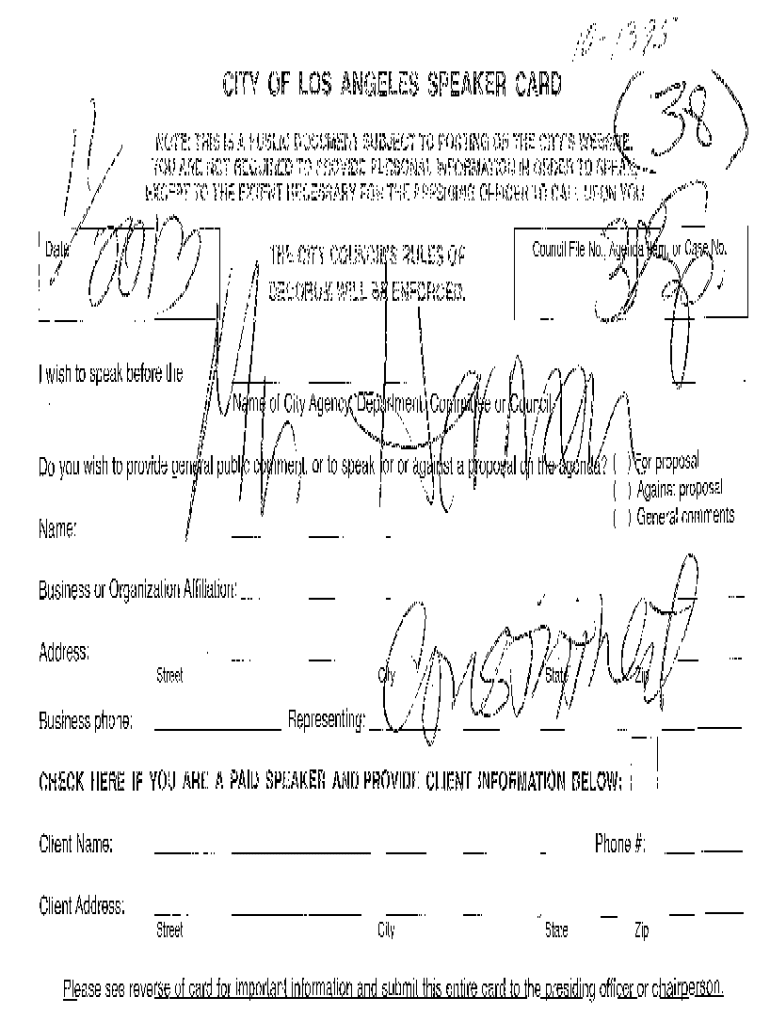 10-1395
CITY OF LOS ANGELES SPEAKER CARD
(38)
NOTE: THIS IS A PUBLIC DOCUMENT SUBJECT TO POSTING ON THE CITY'S WEBSITE.
YOU ARE NOT REQUIRED TO PROVIDE PERSONAL INFORMATION IN ORDER TO SPEAK,
EXCEPT TO THE EXTENT NECESSARY FOR THE PRESIDING OFFICER TO CALL UPON YOU.
Date
2013
THE CITY COUNCIL'S RULES OF
DECORUM WILL BE ENFORCED.
Council File No., Agenda Item, or Case No.
38
I wish to speak before the
Name of City Agency, Department, Committee or Council
Do you wish to provide general public comment, or to speak for or against a proposal on the agenda? ( ) For proposal
( ) Against proposal
( ) General comments
Name:
Business or Organization Affiliation:
Address:
Street City State Zip
Business phone: Representing:
CHECK HERE IF YOU ARE A PAID SPEAKER AND PROVIDE CLIENT INFORMATION BELOW:
Client Name: Phone #:
Client Address:
Street City State Zip
Please see reverse of card for important information and submit this entire card to the presiding officer or chairperson.